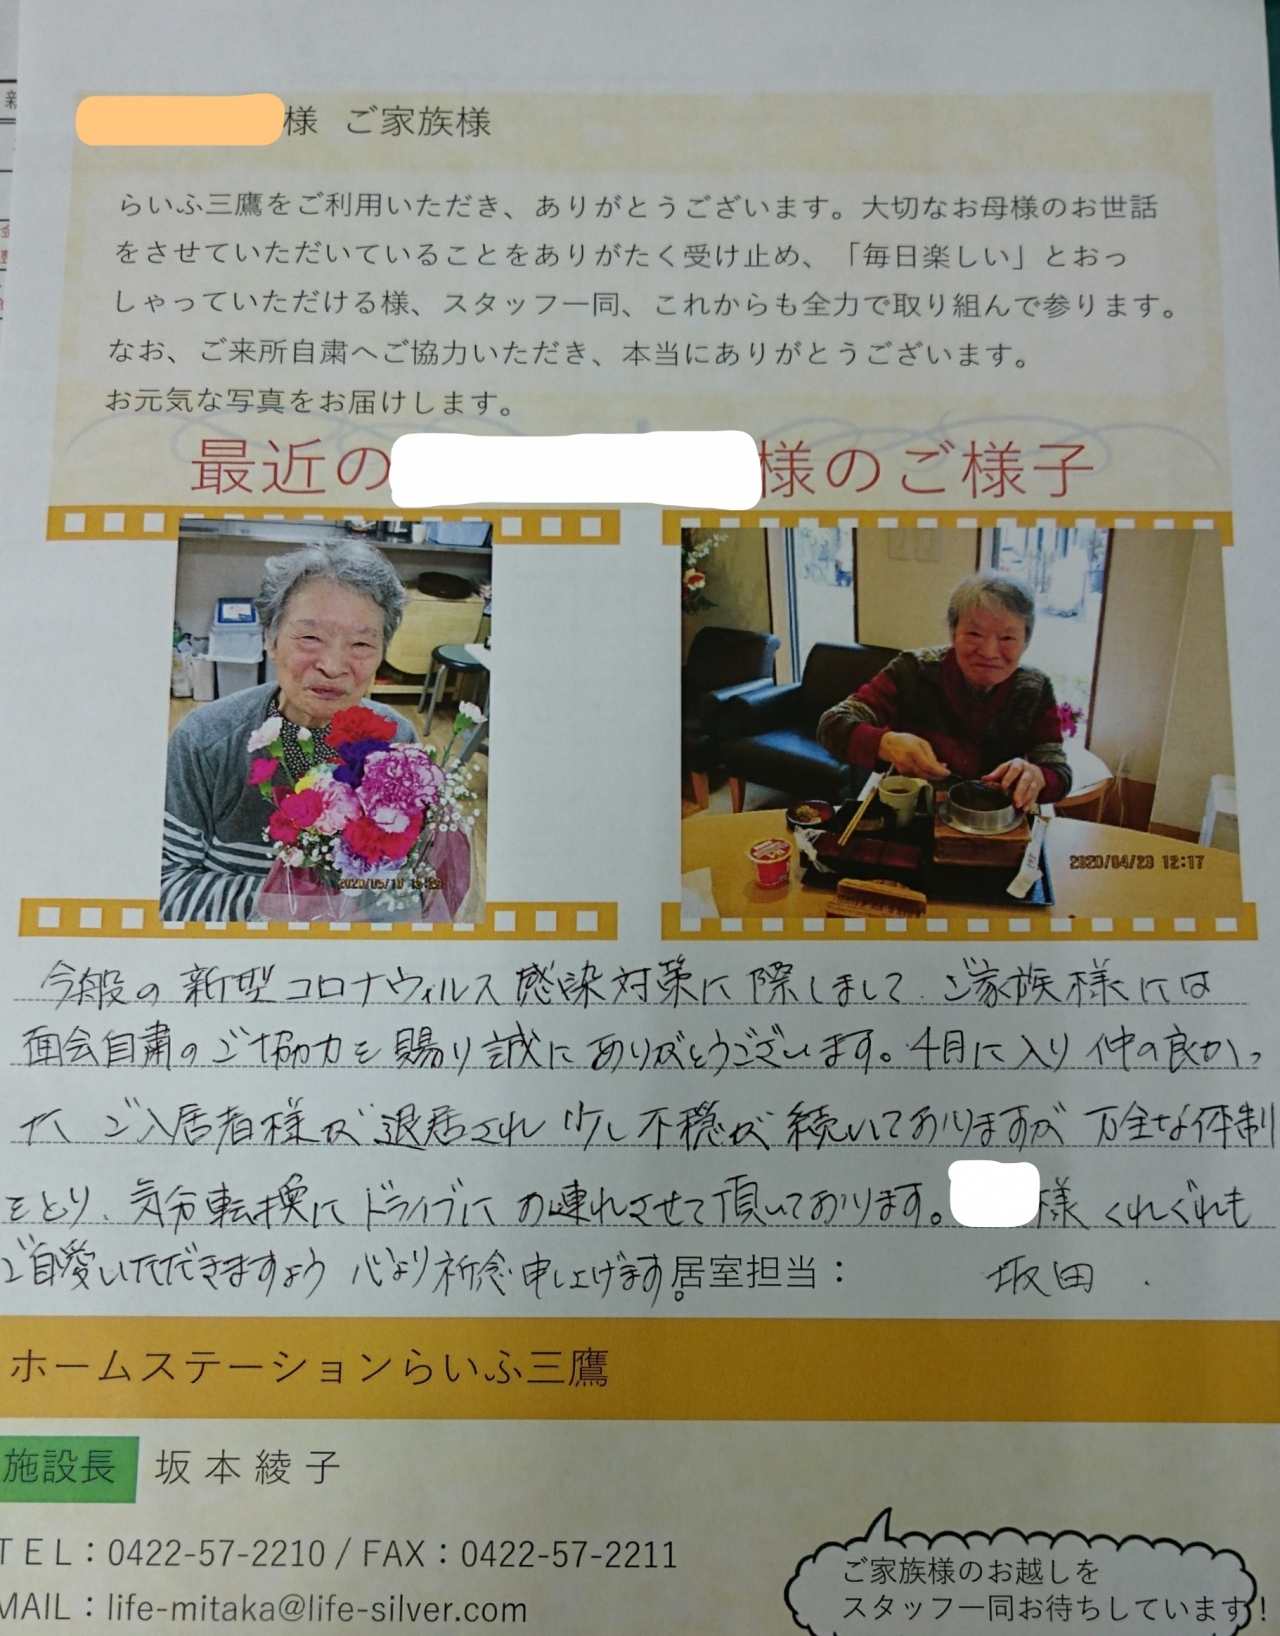 様 ご家族様
らいふ三鷹をご利用いただき、ありがとうございます。大切なお母様のお世話
をさせていただいていることをありがたく受け止め、「毎日楽しい」とおっ
しゃっていただける様、スタッフ一同、これからも全力で取り組んで参ります。
なお、ご来所自粛へご協力いただき、本当にありがとうございます。
お元気な写真をお届けします。
最近の 様のご様子
2020/04/29 12:17
今般の新型コロナウィルス感染対策に際しまして、ご家族様には
面会自粛のご協力を賜り誠にありがとうございます。4月に入り仲の良かっ
た ご入居者様が退居され 少し不穏が続いておりますが 万全な体制
をとり、気分転換に ドライブに お連れさせて頂いております。 様 くれぐれも
ご自愛いただきますよう 心より祈念申し上げます。居室担当： 坂田
ホームステーションらいふ三鷹
施設長 坂本綾子
TEL：0422-57-2210 / FAX：0422-57-2211
MAIL：life-mitaka@life-silver.com
ご家族様のお越しを
スタッフ一同お待ちしています！